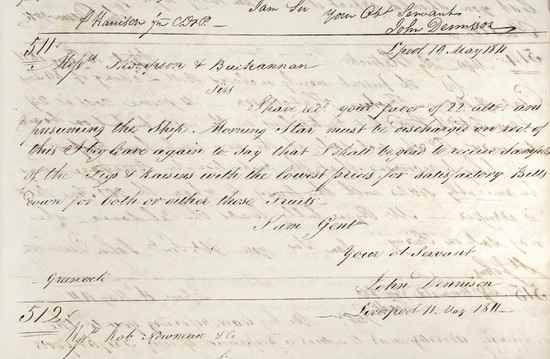 I am Sir Your Obt Servant
P Harrison
John Dennison
511
L'pool 10 May 1811
Thompson & Buchannan
Sirs
I have recd your favor of 22 ulto and
presuming the Ship Morning Star must be discharged on rect of
this I beg leave again to say that I shall be glad to receive samples
of the Figs & Raisins with the lowest prices for satisfactory Bills
down for both or either those Fruits
I am Gent
Your Ot Servant
Greenock
John Dennison
512
Liverpool 11 May 1811
Rob Newman & Co